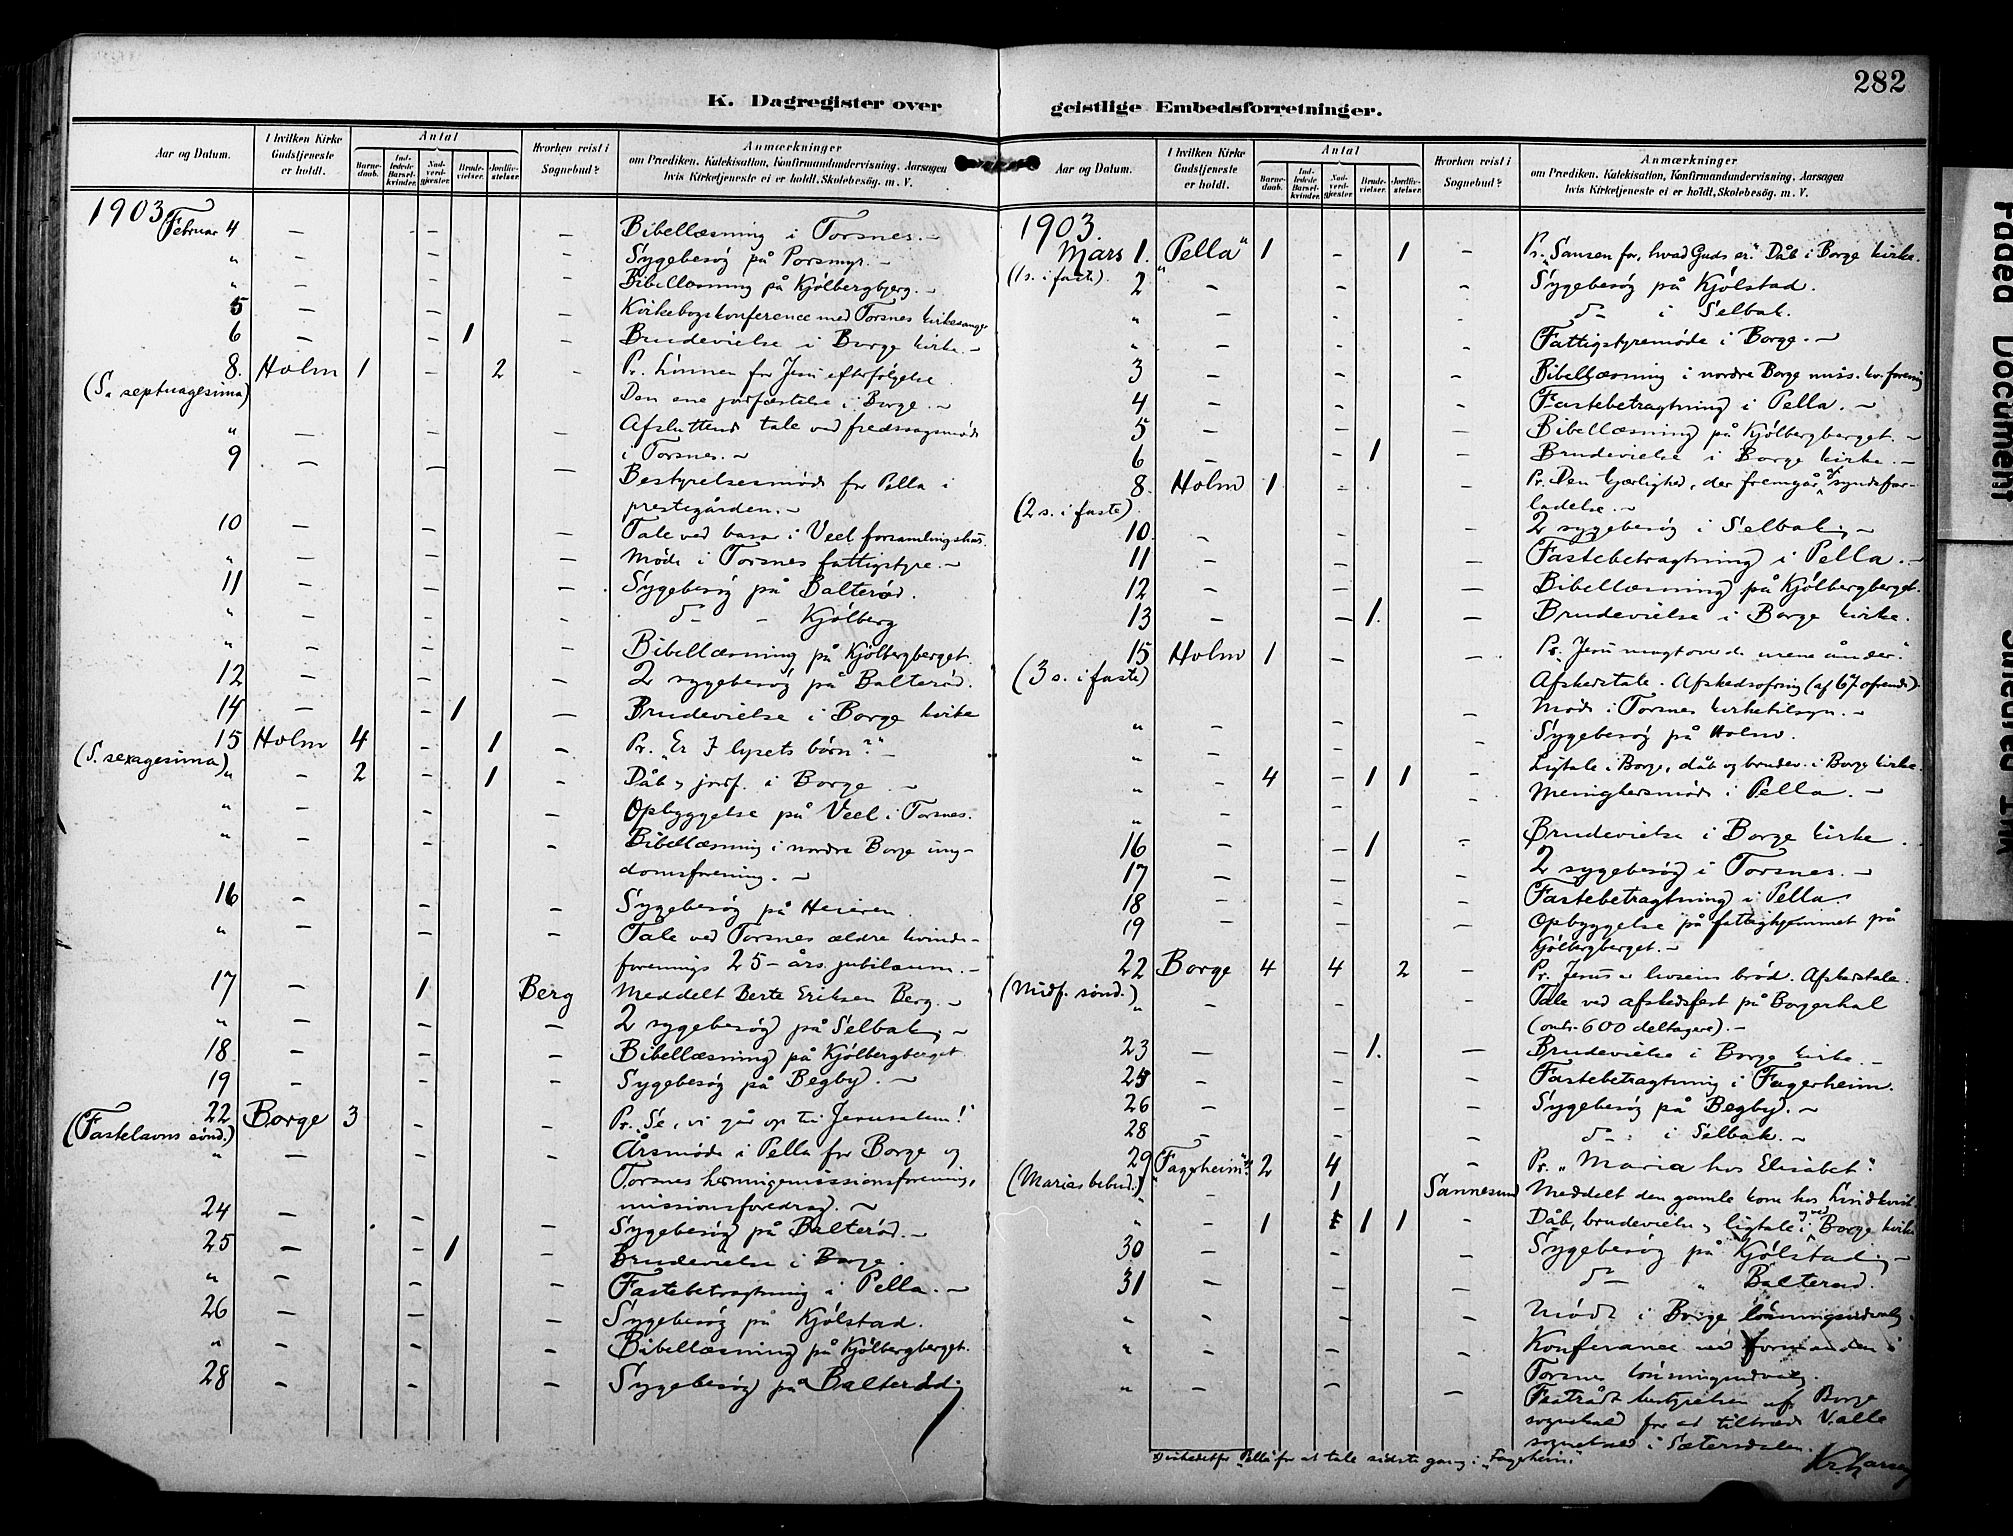 282
K. Dagregister over geistlige Embedsforretninger.
Aar og Datum.
I hvilken Kirke Gudstjeneste er holdt.
Antal
Barnedaab.
Indledede Barselkvinder.
Nadverdgjester
Brudevielser.
Jordfæstelser.
Hvorhen reist i Sognebud?
Anmærkninger
om Prædiken, Katekisation, Konfirmandundervisning, Aarsagen
hvis Kirketjeneste ei er holdt, Skolebesøg. m. V.
1903
Februar 4 – – – Bibellæsning i Torsnes. –
" – – – Sygebesøg på Torsmyr. –
" – – – Bibellæsning på Kjølbergbjerg. –
5 – – – Kirkebogskonference med Torsnes kirkesanger
6 – – 1 – Brudevielse i Borge kirke. –
8. Holm 1 – 2 – Pr. Lønnen for Jesu efterfølgelse.
(S. septuagesima) Den ene jordfæstelse i Borge. –
" – – – Afsluttende tale ved fredssagsmøde
i Torsnes. –
9 – – – Bestyrelsesmøde for Pella i
prestegården. –
10 – – – Tale ved basar i Veel forsamlingshus.
" – – – Møde i Torsnes fattigstyre. –
11 – – – Sygebesøg på Balterød.
" – – – do – Kjølberg
" – – – Bibellæsning på Kjølbergberget.
12 – – – 2 sygebesøg på Balterød.
14 – – 1 – Brudevielse i Borge kirke
15 Holm 4 – 1 – Pr. "Er I lysets børn?" –
(S. sexagesima)
" – 2 – 1 – Dåb & jordf. i Borge. –
" – – – Opbyggelse på Veel i Torsnes.
" – – – Bibellæsning i nordre Borge ung-
domsforening. –
16 – – – Sygebesøg på Heieren.
" – – – Tale ved Torsnes ældre kvinde-
forenings 25-års jubilæum. –
17 – 1 Berg Meddelt Berte Eriksen Berg. –
" – – – 2 sygebesøg på Selbak. –
18 – – – Bibellæsning på Kjølbergberget.
19 – – – Sygebesøg på Begby. –
22 Borge 3 – – Pr. "Se, vi går op til Jerusalem!"
(Fastelavns sønd.)
" – – – Årsmøde i Pella for Borge og
Torsnes hedningemissionsforening,
missionsforedrag. –
24 – – – Sygebesøg på Balterød. –
25 – – 1 – Brudevielse i Borge.
" – – – Fastebetragtning i Pella. –
26 – – – Sygebesøg på Kjølstad.
" – – – Bibellæsning på Kjølbergberget.
28 – – – Sygebesøg på Balterød
Aar og Datum.
I hvilken Kirke Gudstjeneste er holdt.
Antal
Barnedaab.
Indledede Barselkvinder.
Nadverdgjester.
Brudevielser.
Jordfæstelser.
Hvorhen reist i Sognebud?
Anmærkninger
om Prædiken, Katekisation, Konfirmandundervisning, Aarsagen
hvis Kirketjeneste ei er holdt, Skolebesøg. m. V.
1903.
Mars 1. "Pella" 1 – 1 – Pr. "Sansen for, hvad Guds er." Dåb i Borge kirke.
(1 s. i faste).
2 – – – Sygebesøg på Kjølstad.
" – – do i Selbak.
" – – – Fattigstyremøde i Borge. –
3 – – – Bibellæsning i nordre Borge miss. kv. forening
4 – – – Fastebetragtning i Pella. –
5 – – – Bibellæsning på Kjølbergberget. –
6 – – 1 – Brudevielse i Borge kirke. –
8. Holm 1 – – Pr. Den kjærlighed, der fremgår af syndsfor-
(2 s. i faste). ladelse. –
10. – – – 2 sygebesøg i Selbak. –
11 – – – Fastebetragtning i Pella. –
12 – – – Bibellæsning på Kjølbergberget.
13 – – 1. – Brudevielse i Borge kirke.
15 Holm 1 – – Pr. "Jesu magt over de urene ånder."
(3 s. i faste) Afskedstale. Afskedsofring (af 67 ofrende).
" – – – Møde i Torsnes kirketilsyn. –
" – – – Sygebesøg på Holm.
" – 4 – 1 1 – Ligtale i Borge, dåb og brudev. i Borge kirke.
" – – – Menighedsmøde i Pella. –
16 – – 1 – Brudevielse i Borge kirke.
17 – – – 2 sygebesøg i Torsnes. –
18 – – – Fastebetragtning i Pella.
19 – – – Opbyggelse på fattighjemmet på
Kjølbergberget. –
22 Borge 4 4 2 – Pr. Jesus er livsens brød. Afskedstale.
(Midf. sønd.)
" – – – Tale ved afskedsfest på Borgerhal
(omtr. 600 deltagere). –
23 – – 1. – Brudevielse i Borge kirke. –
25 – – – Fastebetragtning i Fagerheim.
26 – – – Sygebesøg på Begby. –
28 – – – do i Selbak. –
29 "Fagerheim" 2 4 – Pr. "Maria hos Elisabet".
(Marias bebud.)
" – 1 Sannesund Meddelt den gamle kone hos Lindkvist
" – 1 1 1 – Dåb, brudevielse & ligtale i og ved Borge kirke
30 – – – Sygebesøg på Kjølstad. –
31 – – – do " Balterød.
" – – – Møde i Borge lønningsudvalg.
" – – – Konferance med formanden i
Torsnes lønningsudvalg.
" – – – Fratrådt bestyrelsen af Borge
sognekald for at tiltræde Valle
sognekald i Sætersdalen.
istedetfor "Pella" for at tale sidste gang i "Fagerheim"
Kr. Larsen
Faded Document